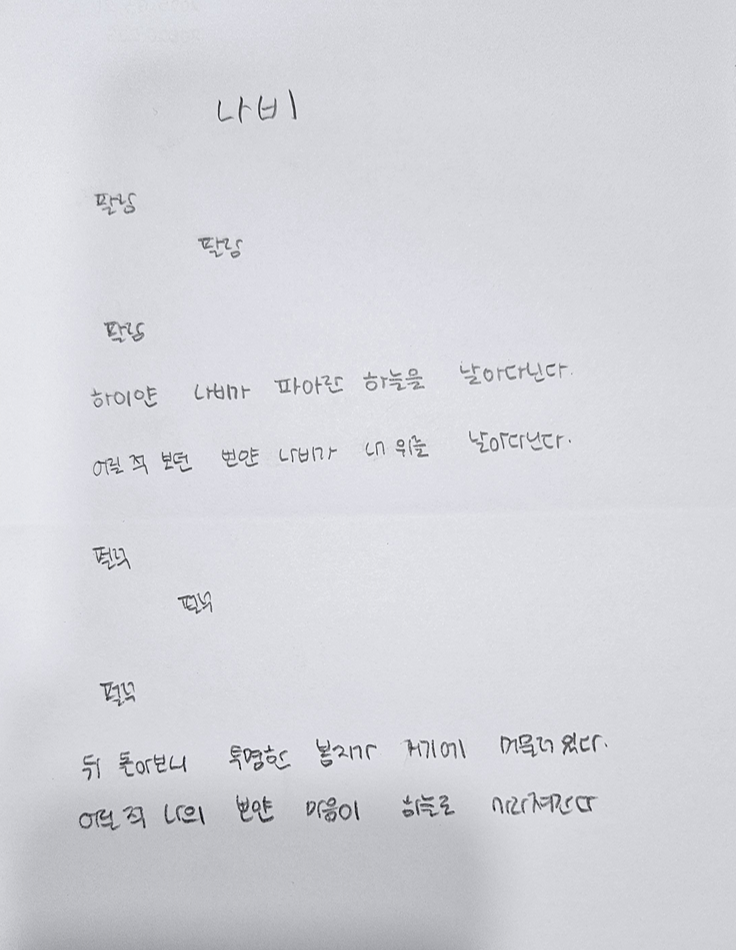 나비
팔랑
팔랑
팔랑
하이얀 나비가 파아란 하늘을 날아다닌다.
어릴 적 보던 뽀얀 나비가 내 위를 날아다닌다.
펄럭
펄럭
펄럭
뒤 돌아보니 투명한 봉지가 저기에 머물러 있다.
어릴 적 나의 뽀얀 마음이 하늘로 사라져간다